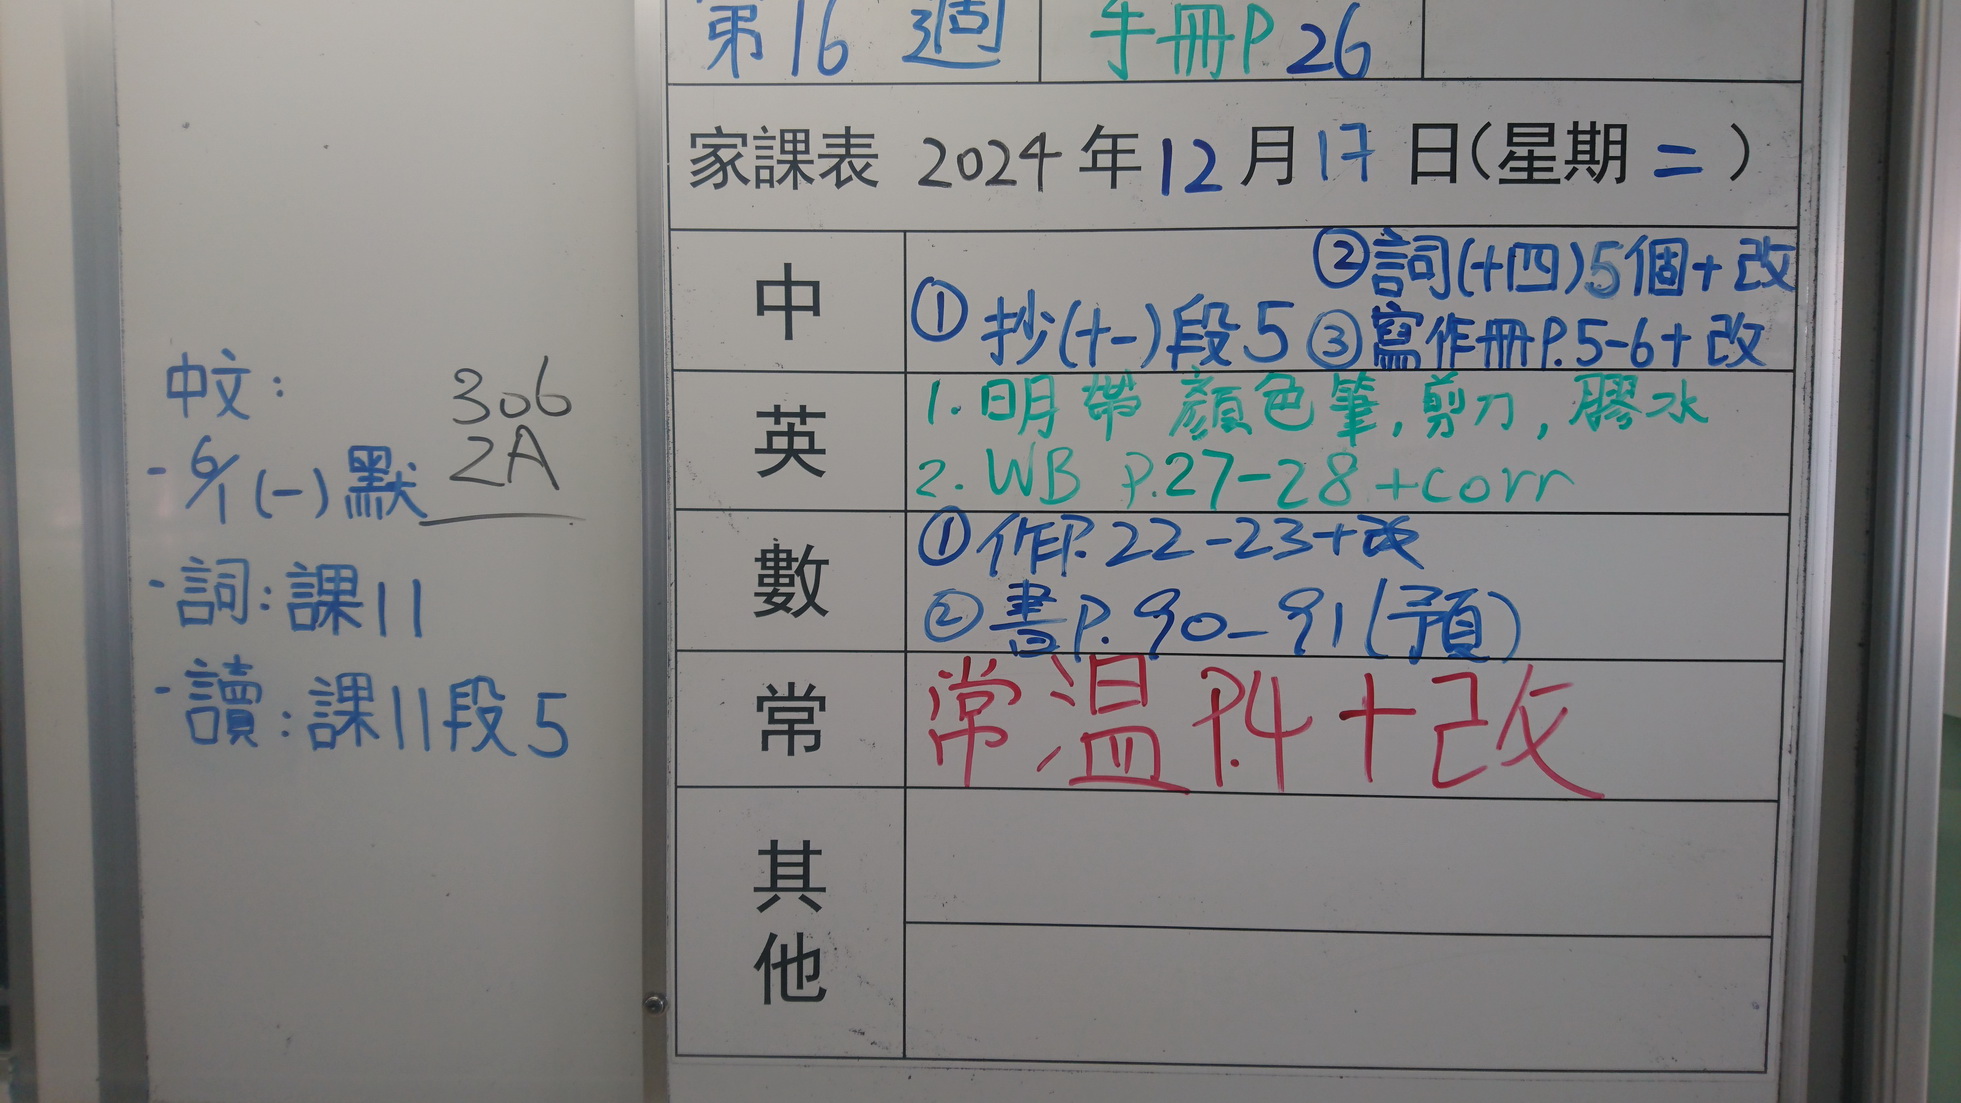 第16週 手冊P.26
家課表 2024年12月17日(星期二)
中 ①抄(十一)段5 ②詞(十四)5個+改
③寫作冊P.5-6+改
英 1. 明帶顏色筆,剪刀,膠水
2. WB P.27-28+corr
數 ①作P.22-23+改
②書P.90-91(預)
常 常温P.4+改
其他
中文:
306
2A
- 6/1(一)默
- 詞:課11
- 讀:課11段5